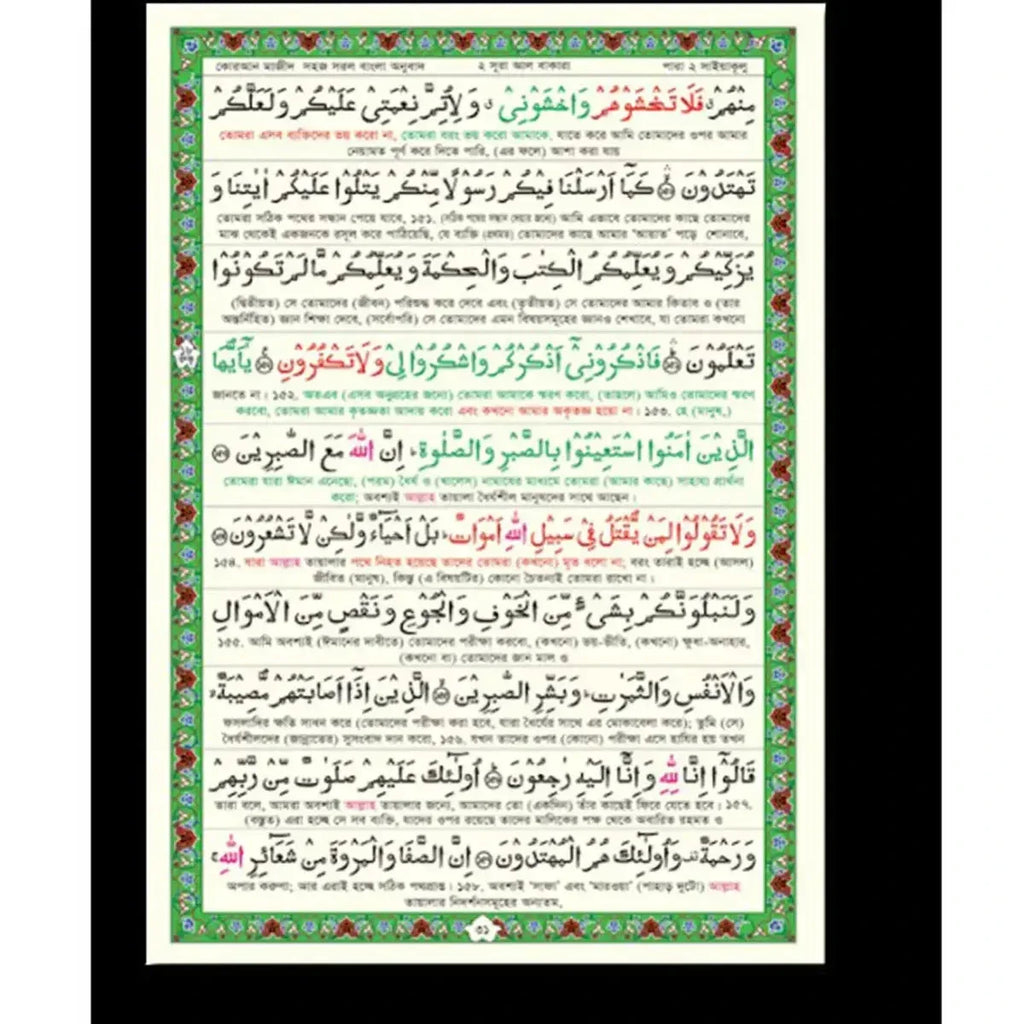 কোরআন মাজীদ সহজ সরল বাংলা অনুবাদ ২ সূরা আল বাকারা পারা ২ সাইয়াকূলু
مِنْهُمْ فَلَا تَخْشَوْهُمْ وَاخْشَوْنِیْ وَلِاُتِمَّ نِعْمَتِیْ عَلَیْكُمْ وَلَعَلَّكُمْ
তোমরা এসব ব্যক্তিদের ভয় করো না, তোমরা বরং ভয় করো আমাকে, যাতে করে আমি তোমাদের ওপর আমার
নেয়ামত পূর্ণ করে দিতে পারি, (এর ফলে) আশা করা যায়
تَهْتَدُوْنَ ۝ كَمَآ اَرْسَلْنَا فِیْكُمْ رَسُوْلًا مِّنْكُمْ یَتْلُوْا عَلَیْكُمْ اٰیٰتِنَا وَ
তোমরা সঠিক পথের সন্ধান পেয়ে যাবে, ১৫১. (সঠিক পথের সন্ধান দেয়ার জন্যে) আমি এভাবে তোমাদের কাছে তোমাদের
মাঝ থেকেই একজনকে রসূল করে পাঠিয়েছি, যে ব্যক্তি (প্রথমত) তোমাদের কাছে আমার 'আয়াত' পড়ে শোনাবে,
یُزَكِّیْكُمْ وَیُعَلِّمُكُمُ الْكِتٰبَ وَالْحِكْمَةَ وَیُعَلِّمُكُمْ مَّا لَمْ تَكُوْنُوْا
(দ্বিতীয়ত) সে তোমাদের (জীবন) পরিশুদ্ধ করে দেবে এবং (তৃতীয়ত) সে তোমাদের আমার কিতাব ও (তার
অন্তর্নিহিত) জ্ঞান শিক্ষা দেবে, (সর্বোপরি) সে তোমাদের এমন বিষয়সমূহের জ্ঞানও শেখাবে, যা তোমরা কখনো
تَعْلَمُوْنَ ۝ فَاذْكُرُوْنِیْٓ اَذْكُرْكُمْ وَاشْكُرُوْا لِیْ وَلَا تَكْفُرُوْنِ ۝ یٰٓاَیُّهَا
জানতে না। ১৫২. অতএব (এসব অনুগ্রহের জন্যে) তোমরা আমাকে স্মরণ করো, (তাহলে) আমিও তোমাদের স্মরণ
করবো, তোমরা আমার কৃতজ্ঞতা আদায় করো এবং কখনো আমার অকৃতজ্ঞ হয়ো না। ১৫৩. হে (মানুষ,)
الَّذِیْنَ اٰمَنُوا اسْتَعِیْنُوْا بِالصَّبْرِ وَالصَّلٰوةِ ؕ اِنَّ اللّٰهَ مَعَ الصّٰبِرِیْنَ ۝
তোমরা যারা ঈমান এনেছো, (পরম) ধৈর্য ও (খালেস) নামাযের মাধ্যমে তোমরা (আমার কাছে) সাহায্য প্রার্থনা
করো; অবশ্যই আল্লাহ তায়ালা ধৈর্যশীল মানুষদের সাথে আছেন।
وَلَا تَقُوْلُوْا لِمَنْ یُّقْتَلُ فِیْ سَبِیْلِ اللّٰهِ اَمْوَاتٌ ؕ بَلْ اَحْیَآءٌ وَّلٰكِنْ لَّا تَشْعُرُوْنَ ۝
১৫৪. যারা আল্লাহ তায়ালার পথে নিহত হয়েছে তাদের তোমরা (কখনো) মৃত বলো না, বরং তারাই হচ্ছে (আসল)
জীবিত (মানুষ), কিন্তু (এ বিষয়টির) কোনো চৈতন্যই তোমরা রাখো না।
وَلَنَبْلُوَنَّكُمْ بِشَیْءٍ مِّنَ الْخَوْفِ وَالْجُوْعِ وَنَقْصٍ مِّنَ الْاَمْوَالِ
১৫৫. আমি অবশ্যই (ঈমানের দাবীতে) তোমাদের পরীক্ষা করবো, (কখনো) ভয়-ভীতি, (কখনো) ক্ষুধা-অনাহার,
(কখনো বা) তোমাদের জান মাল ও
وَالْاَنْفُسِ وَالثَّمَرٰتِ ؕ وَبَشِّرِ الصّٰبِرِیْنَ ۝ الَّذِیْنَ اِذَآ اَصَابَتْهُمْ مُّصِیْبَةٌ
ফসলাদির ক্ষতি সাধন করে (তোমাদের পরীক্ষা করা হবে, যারা ধৈর্যের সাথে এর মোকাবেলা করে); তুমি (সে)
ধৈর্যশীলদের (জান্নাতের) সুসংবাদ দান করো, ১৫৬. যখন তাদের ওপর (কোনো) পরীক্ষা এসে হাযির হয় তখন
قَالُوْٓا اِنَّا لِلّٰهِ وَاِنَّآ اِلَیْهِ رٰجِعُوْنَ ۝ اُولٰٓئِكَ عَلَیْهِمْ صَلَوٰتٌ مِّنْ رَّبِّهِمْ
তারা বলে, আমরা অবশ্যই আল্লাহ তায়ালার জন্যে, আমাদের তো (একদিন) তাঁর কাছেই ফিরে যেতে হবে। ১৫৭.
(বস্তুত) এরা হচ্ছে সে সব ব্যক্তি, যাদের ওপর রয়েছে তাদের মালিকের পক্ষ থেকে অবারিত রহমত ও
وَرَحْمَةٌ وَاُولٰٓئِكَ هُمُ الْمُهْتَدُوْنَ ۝ اِنَّ الصَّفَا وَالْمَرْوَةَ مِنْ شَعَآئِرِ اللّٰهِ ۚ
অপার করুণা; আর এরাই হচ্ছে সঠিক পথপ্রাপ্ত। ১৫৮. অবশ্যই 'সাফা' এবং 'মারওয়া' (পাহাড় দুটো) আল্লাহ
তায়ালার নিদর্শনসমূহের অন্যতম,
৩১